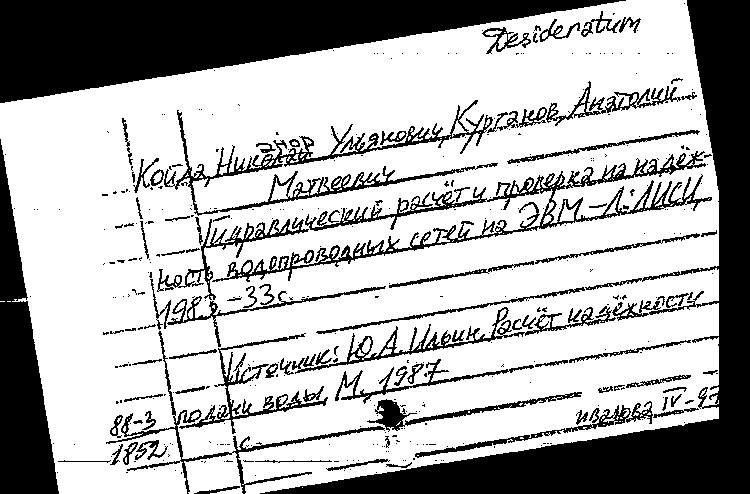 Desideratum
Койда, Николай Ульянович, Курганов, Анатолий
Матвеевич
Гидравлический расчёт и проверка на надёж-
ность водопроводных сетей на ЭВМ. - Л.: ЛИСИ,
1983. - 33 с.
Источник: Ю.А. Ильин. Расчёт надёжности
подачи воды, М., 1987
88-3
1852
с
Иванова, IV-97